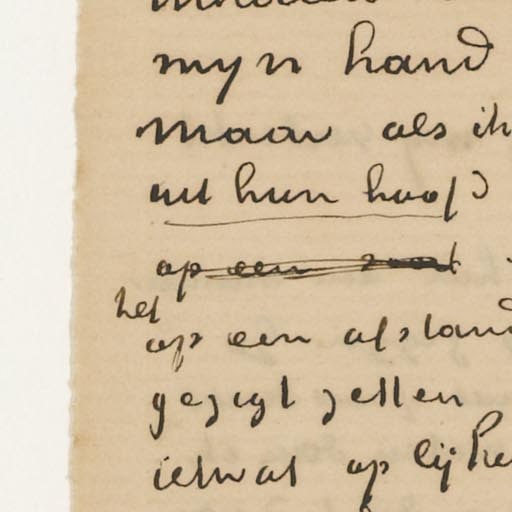 myn hand
maar als ik
uit hun hoofd
op een soort
het
op een afstand
gezigt zetten
ietwat op lijke